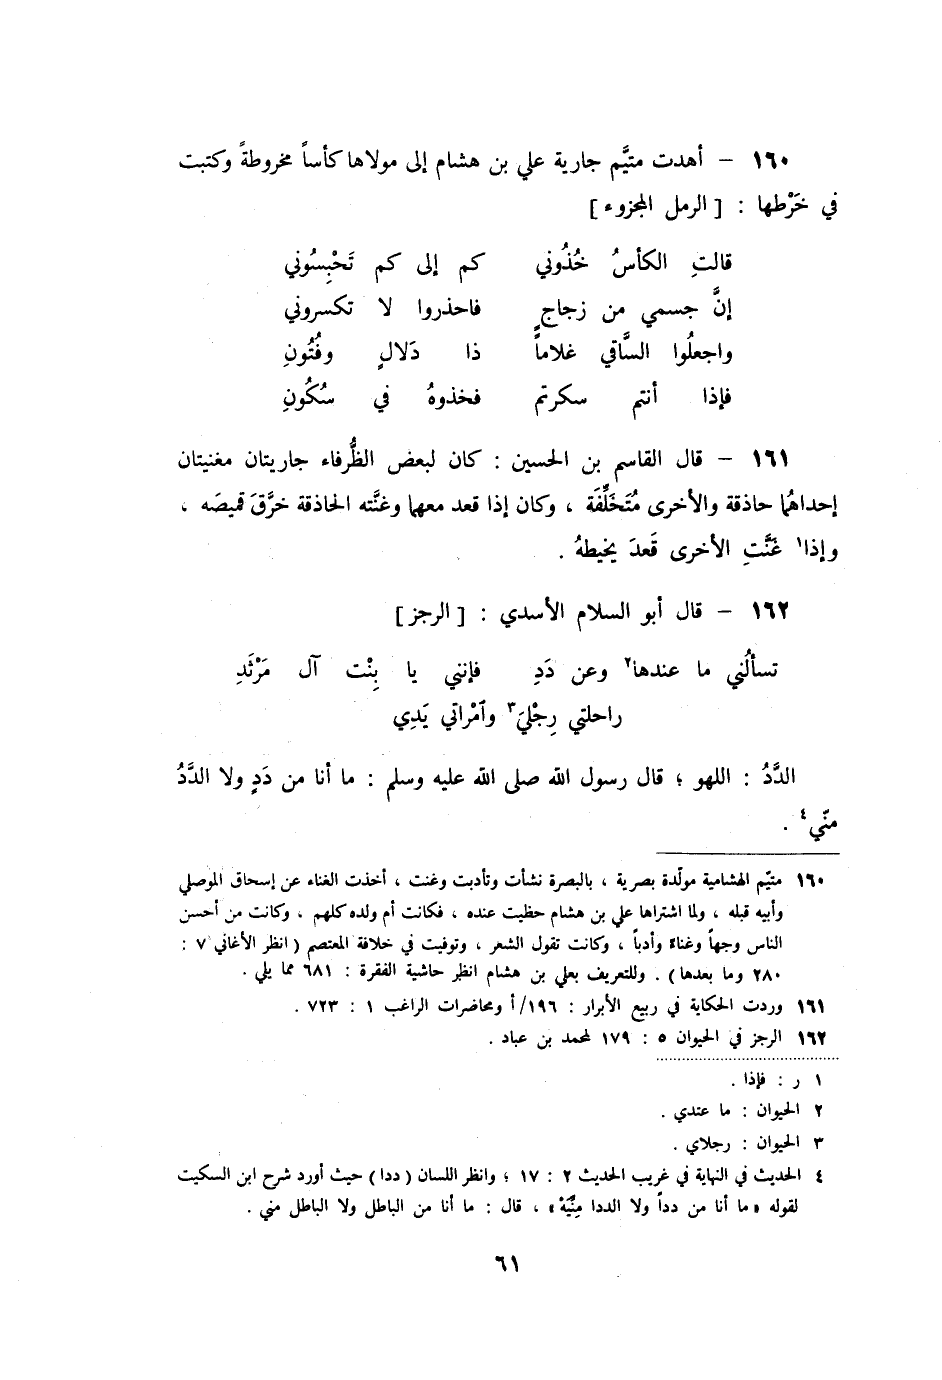 ١٦٠ – أهدت متيَّم جارية علي بن هشام إلى مولاها كأساً مخروطةً وكتبت
في خَرْطها : [ الرمل المجزوء ]
قالتِ الكأسُ خُذُوني كم إلى كم تَحْبِسُوني
إنَّ جسمي من زجاجٍ فاحذروا لا تكسروني
واجعلُوا السَّاقي غلاماً ذا دَلالٍ وفُتُونِ
فإذا أنتم سكرتم فخذوهُ في سُكُونِ
١٦١ – قال القاسم بن الحسين : كان لبعض الظُّرفاء جاريتان مغنيتان
إحداهُما حاذقة والأخرى مُتَخَلِّفَة ، وكان إذا قعد معهما وغنَّته الحاذقة خرَّقَ قميصَه ،
وإذا١ غَنَّتِ الأخرى قَعدَ يخيطهُ .
١٦٢ – قال أبو السلام الأسدي : [ الرجز ]
تسألُني ما عندها٢ وعن دَدِ فإنني يا بِنْت آل مَرْثَدِ
راحلتي رِجْليَ٣ وآمْراتي يَدِي
الدَّدُ : اللهو ؛ قال رسول الله صلى الله عليه وسلم : ما أنا من دَدٍ ولا الدَّدُ
منّي٤ .
١٦٠ متيّم الهشامية مولّدة بصرية ، بالبصرة نشأت وتأدبت وغنت ، أخذت الغناء عن إسحاق الموصلي
وأبيه قبله ، ولما اشتراها علي بن هشام حظيت عنده ، فكانت أم ولده كلهم ، وكانت من أحسن
الناس وجهاً وغناءً وأدباً ، وكانت تقول الشعر ، وتوفيت في خلافة المعتصم ( انظر الأغاني ٧ :
٢٨٠ وما بعدها ) . وللتعريف بعلي بن هشام انظر حاشية الفقرة : ٦٨١ مما يلي .
١٦١ وردت الحكاية في ربيع الأبرار : ١٩٦/أ ومحاضرات الراغب ١ : ٧٢٣ .
١٦٢ الرجز في الحيوان ٥ : ١٧٩ لمحمد بن عباد .
١ ر : فإذا .
٢ الحيوان : ما عندي .
٣ الحيوان : رجلاي .
٤ الحديث في النهاية في غريب الحديث ٢ : ١٧ ؛ وانظر اللسان ( ددا ) حيث أورد شرح ابن السكيت
لقوله « ما أنا من ددأ ولا الددا مِنِّيَهْ » ، قال : ما أنا من الباطل ولا الباطل مني .
٦١